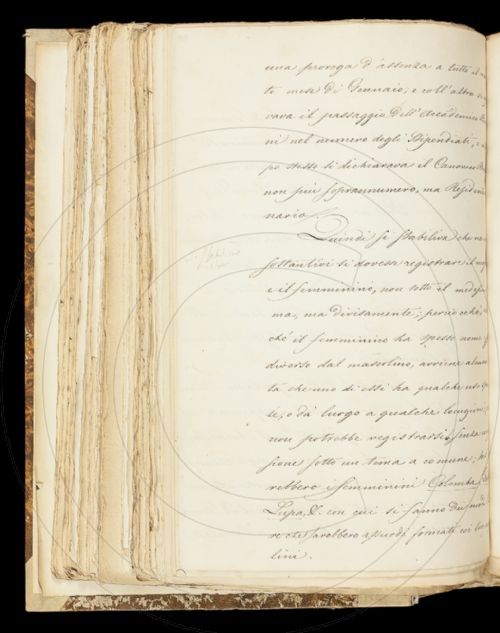 una proroga d'assenza a tutto il
te mese di Gennaio; e coll'altro
cava il passaggio dell'Accademico
ni nel numero degli Stipendiati;
po stesso si dichiarava il Canonico
non più soprannumero, ma Resid
nario.
Quindi si stabiliva che ne
sostantivi si dovesse registrare il
e il femminino, non sotto il medes
ma, ma divisamente; perciocchè
chè il femminino ha spesso nome
diverso dal mascolino, avviene
ta che uno di essi ha qualche
te, o dà luogo a qualche locuzione
non potrebbe registrarsi senza
sione sotto un tema a comune;
rebbero i femminini Colomba,
Lupa, &. con cui si fanno dei modi
re che sarebbero assurdi formati coi
lini.